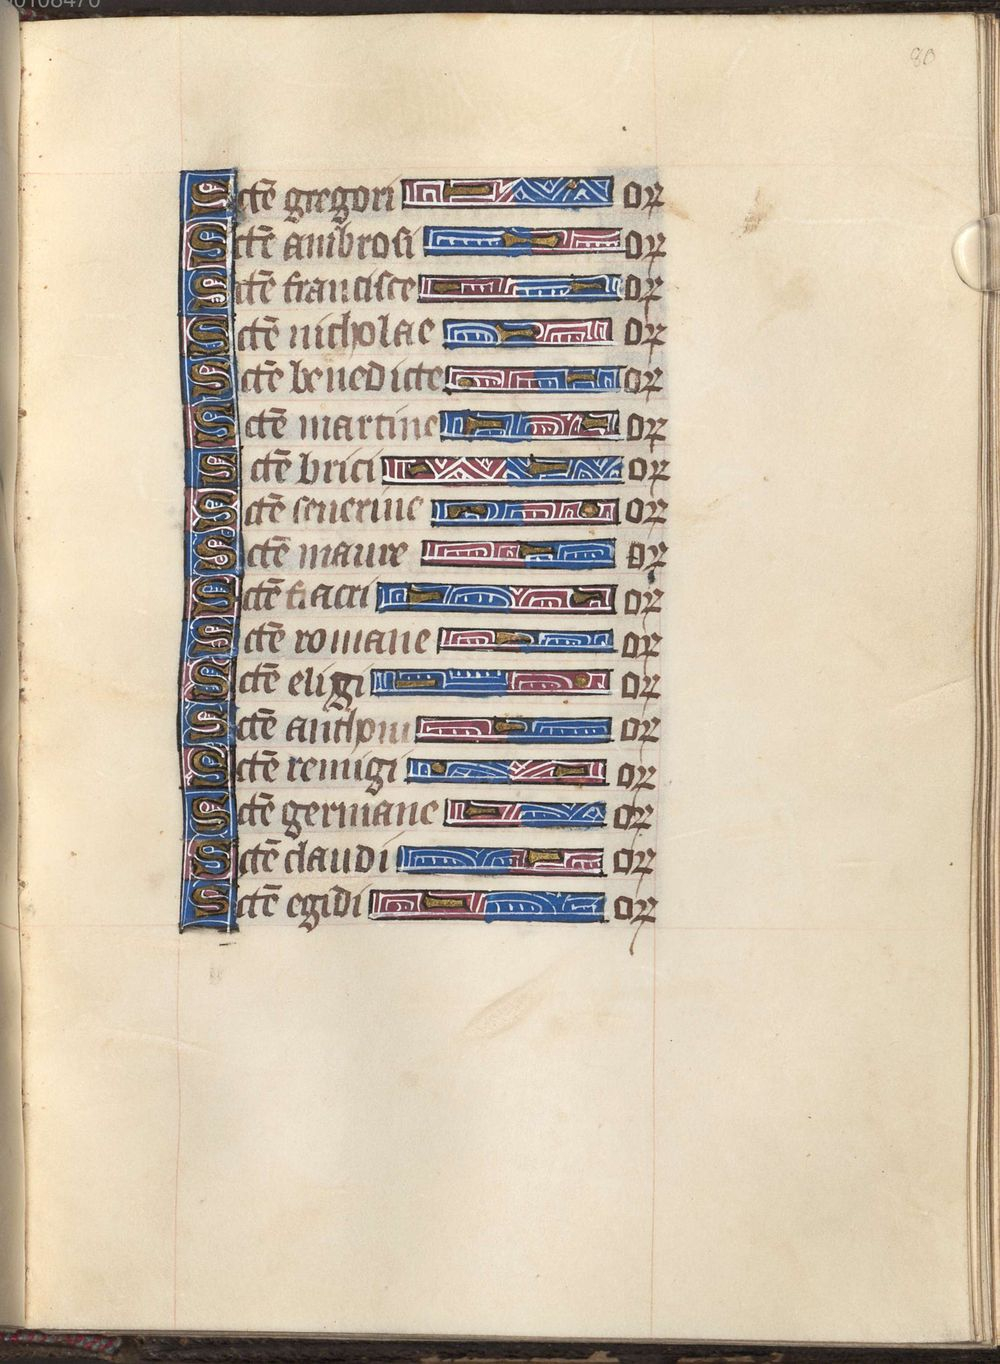 80
Sctē gregori or
Sctē ambrosi or
Sctē francisce or
Sctē nicholae or
Sctē benedicte or
Sctē martine or
Sctē brici or
Sctē seuerine or
Sctē maure or
Sctē fiacri or
Sctē romane or
Sctē eligi or
Sctē anthoni or
Sctē remigi or
Sctē germane or
Sctē claudi or
Sctē egidi or